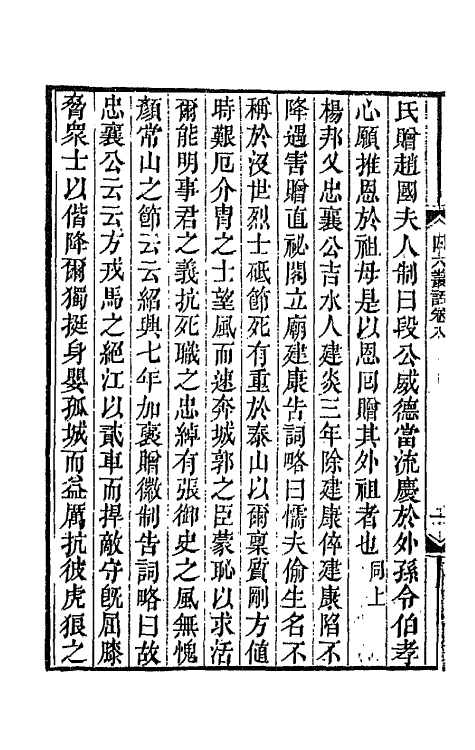 氏贈趙國夫人制曰段公威德當流慶於外孫令伯孝
心願推恩於祖母是以恩囘贈其外祖者也同上
楊邦乂忠襄公吉水人建炎三年除建康倅建康陷不
降遇害贈直祕閣立廟建康告詞略曰懦夫偷生名不
稱於沒世烈士砥節死有重於泰山以爾稟質剛方値
時艱厄介冑之士望風而速奔城郭之臣蒙恥以求活
爾能明事君之義抗死職之忠綽有張御史之風無愧
顏常山之節云云紹興七年加襃贈徽制告詞略曰故
忠襄公云云方戎馬之絕江以貳車而捍敵守旣屈膝
脅眾士以偕降爾獨挺身嬰孤城而益厲抗彼虎狼之
四六叢話卷八